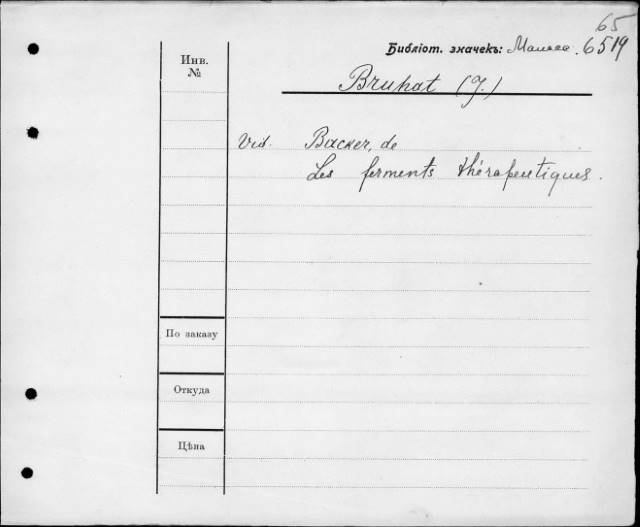 65
Библіот. значекъ: 6519
Инв.
№
Bruhat (J.)
Vid. Backer, de
Les ferments thérapeutiques.
По заказу
Откуда
Цѣна